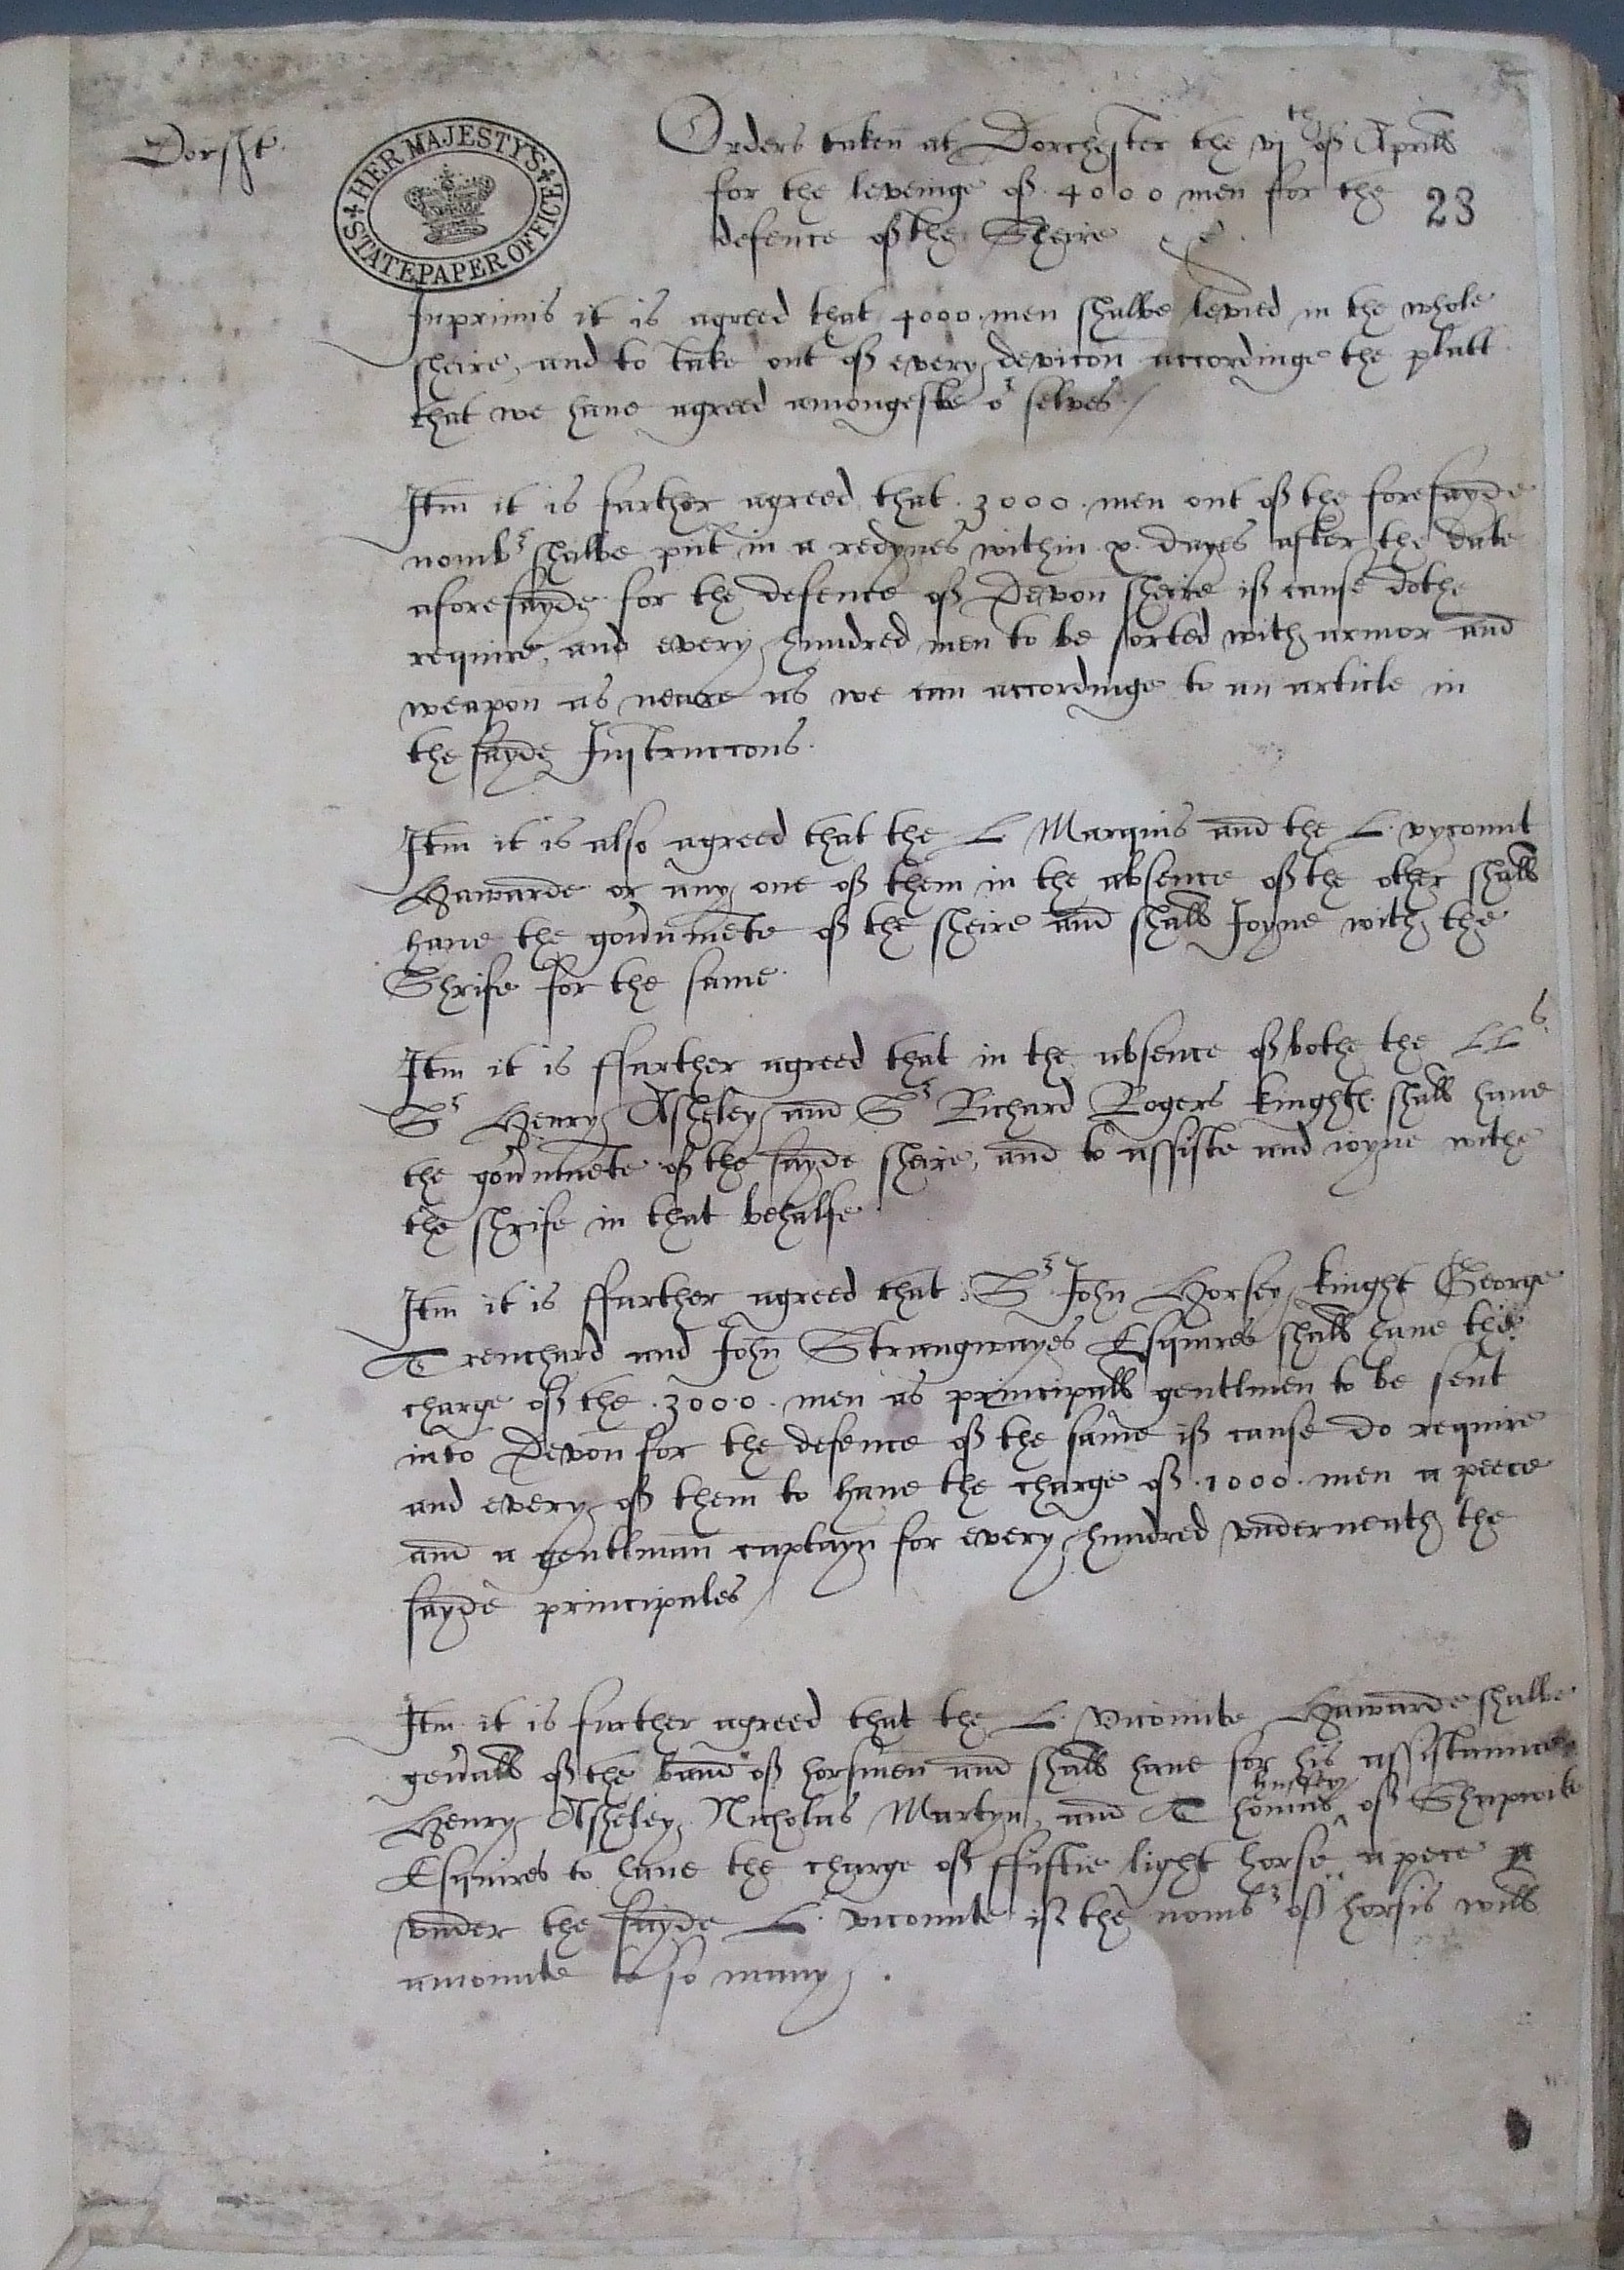 Dorsht.
HER MAJESTY'S
STATE PAPER OFFICE
Orders taken at Dorchester the vjth of Aprill
for the leveinge of 4000 men for the
defence of the Sheire
23
Inprimis it is agreed that 4000. men shalbe levied in the whole
sheire, and to take out of every devicon accordinge the platt
that we have agreed amongeste or selves /
Itm it is further agreed that . 3000 . men out of the foresayde
nombr shalbe put in a redynes within x. dayes after the date
aforesayde for the defence of Devon sheire if cause dothe
require, and every hundred men to be sorted with armor and
weapon as neare as we can accordinge to an article in
the sayde Instruccons.
Itm it is also agreed that the L Marquis and the L. vycount
Hawarde or any one of them in the absence of the other shall
have the govnmete of the sheire and shall Joyne with the
Shrife for the same.
Itm it is ffurther agreed that in the absence of bothe the LLs
Sr Henry Asheley and Sr Richard Rogers knights shall have
the govnmete of the sayde sheire, and to assiste and ioyne withe
the shrife in that behalfe
Itm it is ffurther agreed that Sr John Horsey knight George
Trenchard and John Strangwayes Esquires shall have the
charge of the . 3000 . men as principall gentlmen to be sent
into Devon for the defence of the same if cause do require
and every of them to have the charge of . 1000 . men a peece
and a gentlman captayn for every hundred underneath the
sayde principales /
Itm it is further agreed that the L. Vicounte Hawarde shalbe
genall of the band of horsmen and shall have for his assistannce
Henry Asheley Nicholas Martyn, and Thomas ^ hussey of Shapwike
Esquires to have the charge of ffiftie light horse a pece
under the sayde L. vicounte if the nombr of horsis will
amounte to so many .